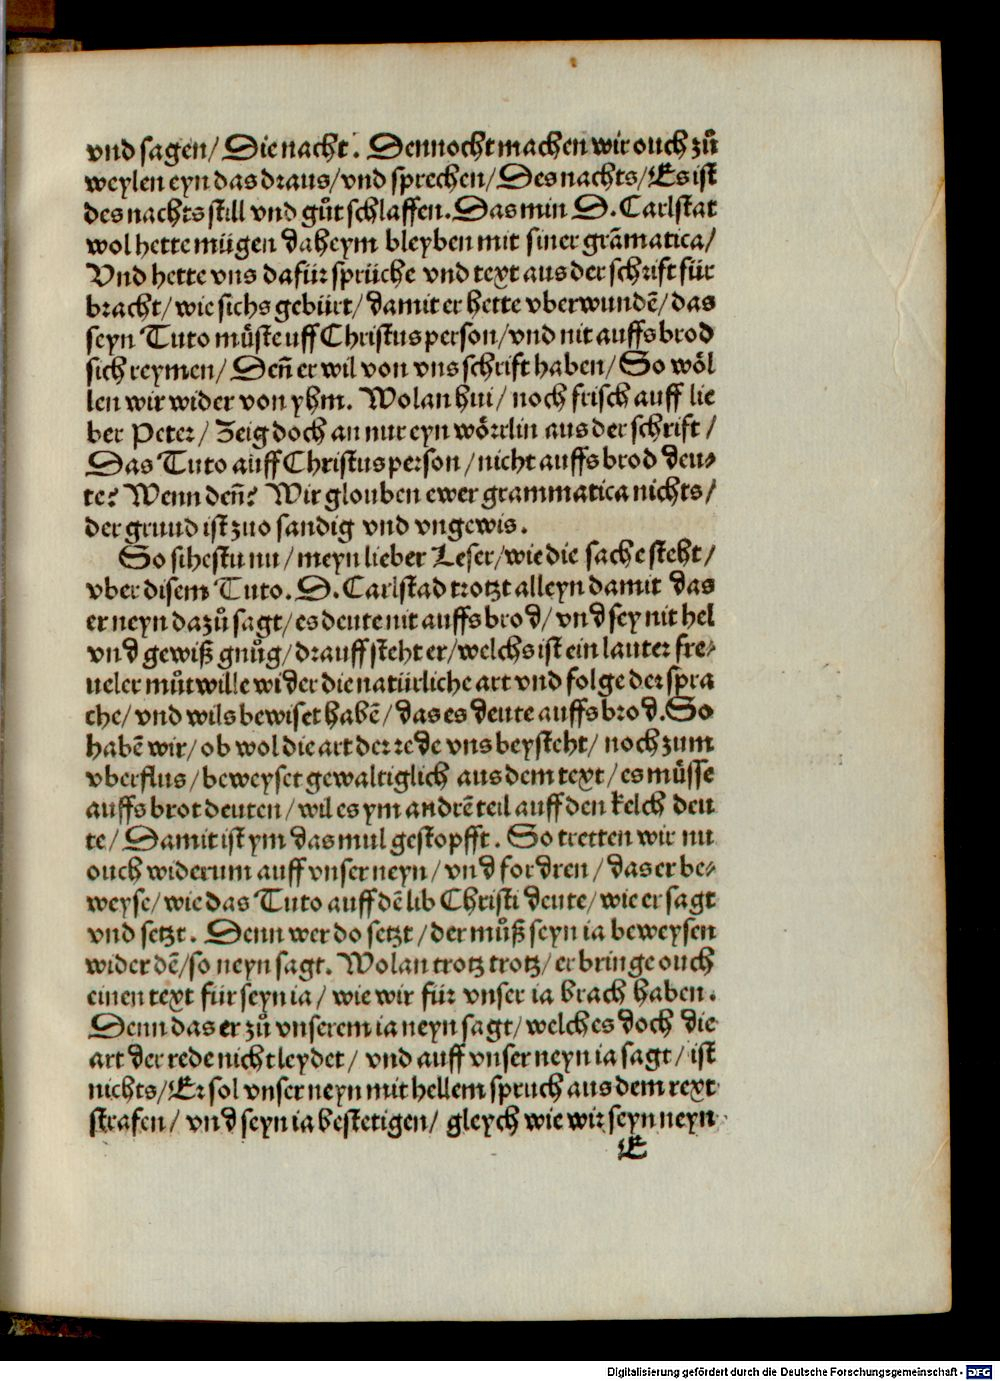 vnd sagen/ Die nacht. Dennocht machen wir ouch zů
weylen eyn das draus/ vnd sprechen/ Des nachts/ Es ist
des nachts still vnd gůt schlaffen. Das min D. Carlstat
wol hette mügen daheym bleyben mit siner grãmatica/
Vnd hette vns dafür sprüche vnd text aus der schrift für
bracht/ wie sichs gebürt/ damit er hette vberwundẽ/ das
seyn Tuto müste uff Christus person/ vnd nit auffs brod
sich reymen/ Deñ er wil von vns schrift haben/ So wöl
len wir wider von yhm. Wolan hui/ noch frisch auff lie
ber Peter/ Zeig doch an nur eyn wörrlin aus der schrift/
Das Tuto auff Christus person/ nicht auffs brod deu⸗
te? Wenn deñ? Wir glouben ewer grammatica nichts/
der grund ist zuo sandig vnd vngewis.
So sihestu nu/ meyn lieber Leser/ wie die sache steht/
vber disem Tuto. D. Carlstad trotzt alleyn damit das
er neyn dazů sagt/ es deute nit auffs brod/ vnd sey nit hel
vnd gewiß gnůg/ drauff steht er/ welchs ist ein lauter fre⸗
ueler můtwille wider die natürliche art vnd folge der spra
che/ vnd wils bewiset habẽ/ das es deute auffs brod. So
habẽ wir/ ob wol die art der rede vns beysteht/ noch zum
vberflus/ beweyset gewaltiglich aus dem text/ es müsse
auffs brot deuten/ wil es ym andrẽ teil auff den kelch deu
te/ Damit ist ym das mul gestopfft. So tretten wir nu
ouch widerum auff vnser neyn/ vnd fordren/ das er be⸗
weyse/ wie das Tuto auff dẽ lib Christi deute/ wie er sagt
vnd setzt. Denn wer do setzt/ der můß seyn ia beweysen
wider dẽ/ so neyn sagt. Wolan trotz trotz/ er bringe ouch
einen text für seyn ia/ wie wir für vnser ia brach haben.
Denn das er zů vnserem ia neyn sagt/ welches doch die
art der rede nicht leydet/ vnd auff vnser neyn ia sagt/ ist
nichts/ Er sol vnser neyn mit hellem spruch aus dem text
strafen/ vnd seyn ia bestetigen/ gleych wie wir seyn neyn
E
Digitalisierung gefördert durch die Deutsche Forschungsgemeinschaft - DFG